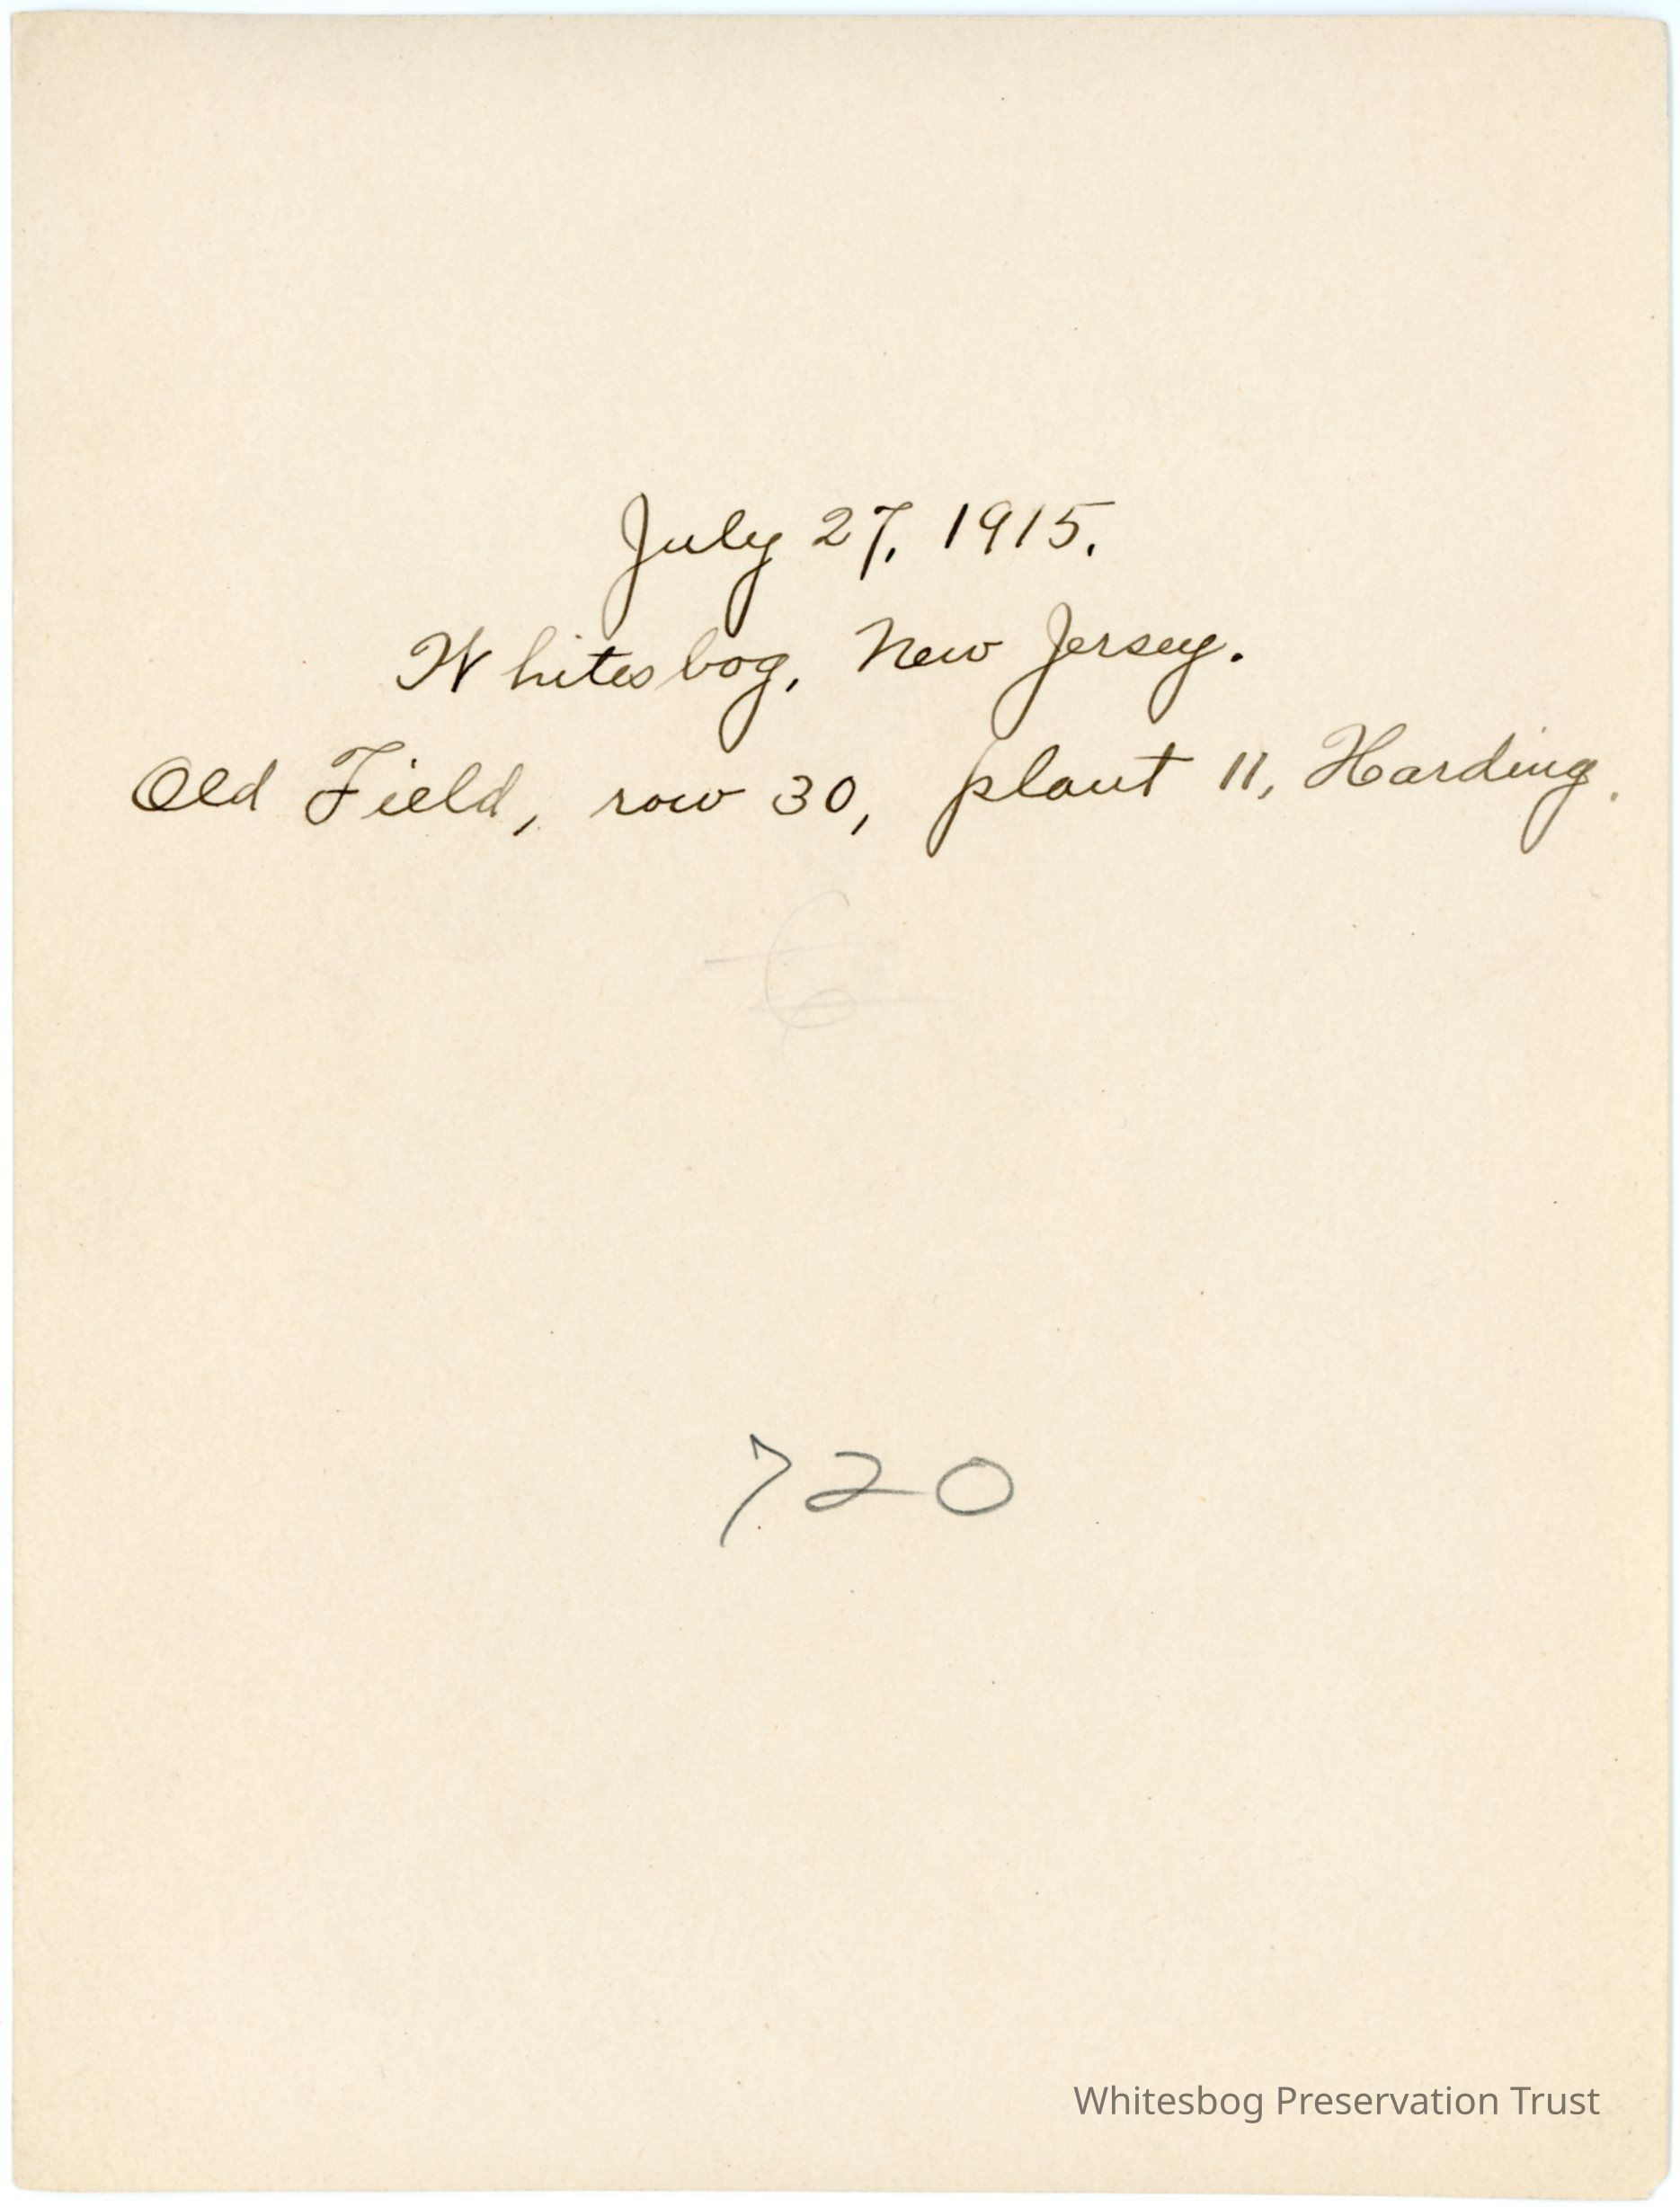 July 27, 1915.
Whitesbog, New Jersey.
Old Field, row 30, plant 11, Harding.
720
Whitesbog Preservation Trust